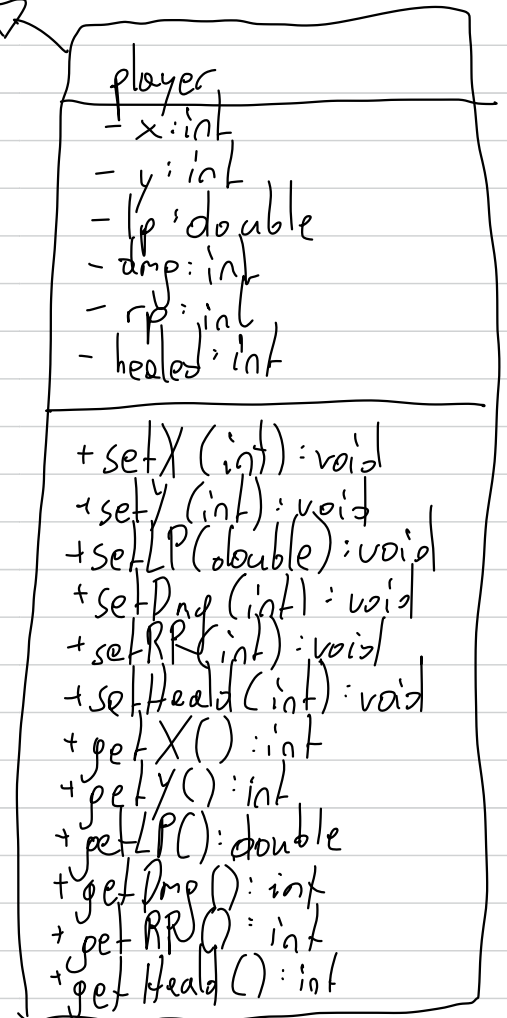 player
- x : int
- y : int
- lp : double
- dmp : int
- rp : int
- healed : int
+ setX (int) : void
+ setY (int) : void
+ setLP(double) : void
+ setDmg (int) : void
+ setRP (int) : void
+ setHeald (int) : void
+ getX() : int
+ getY() : int
+ getLP() : double
+ getDmg () : int
+ getRP () : int
+ getHeald () : int